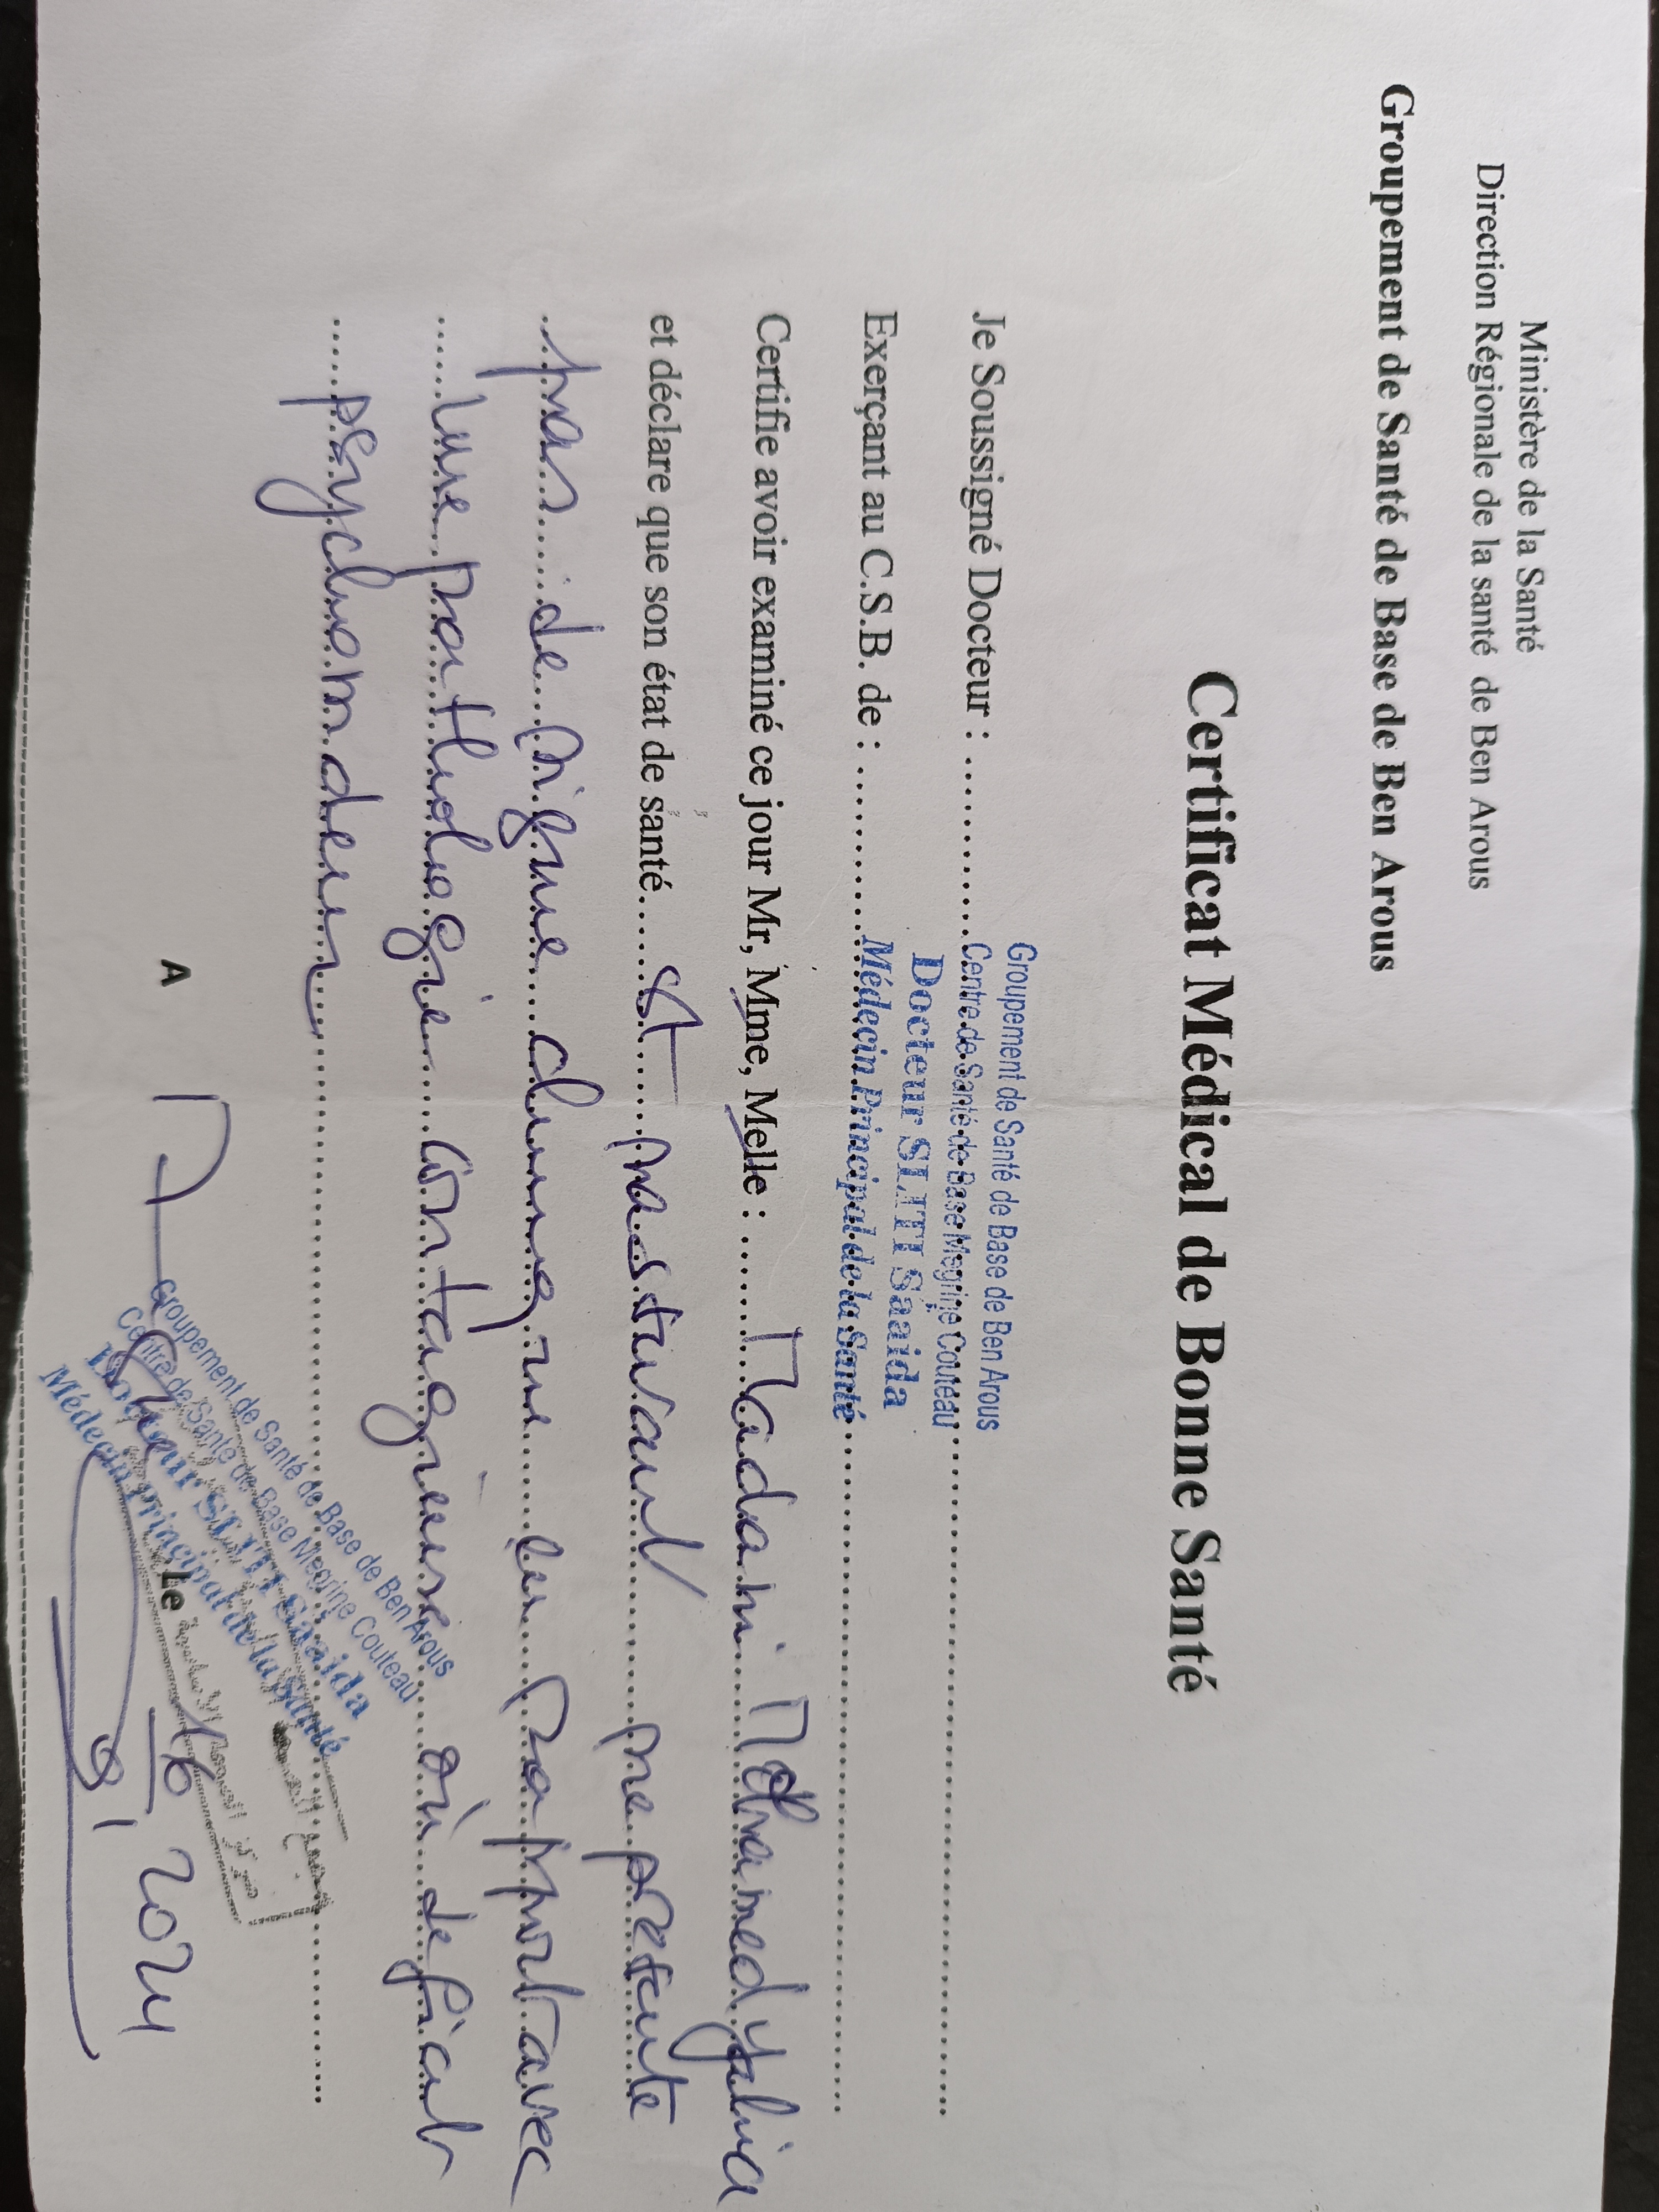 Ministère de la Santé
Direction Régionale de la santé de Ben Arous
Groupement de Santé de Base de Ben Arous
Certificat Médical de Bonne Santé
Groupement de Santé de Base de Ben Arous
Je Soussigné Docteur : Centre de Santé de Base Megrine Couteau
Docteur SLITI Saaida
Exerçant au C.S.B. de : Médecin Principal de la Santé
Certifie avoir examiné ce jour Mr, Mme, Melle : Madani Mohamed Yahia
et déclare que son état de santé est ne présente
pas de signe clinique en rapport avec
une pathologie contagieuse où deficit
psychomadeur
Groupement de Santé de Base de Ben Arous
Centre de Santé de Base Megrine Couteau
Docteur SLITI Saaida
Médecin Principal de la Santé
A Le 2024